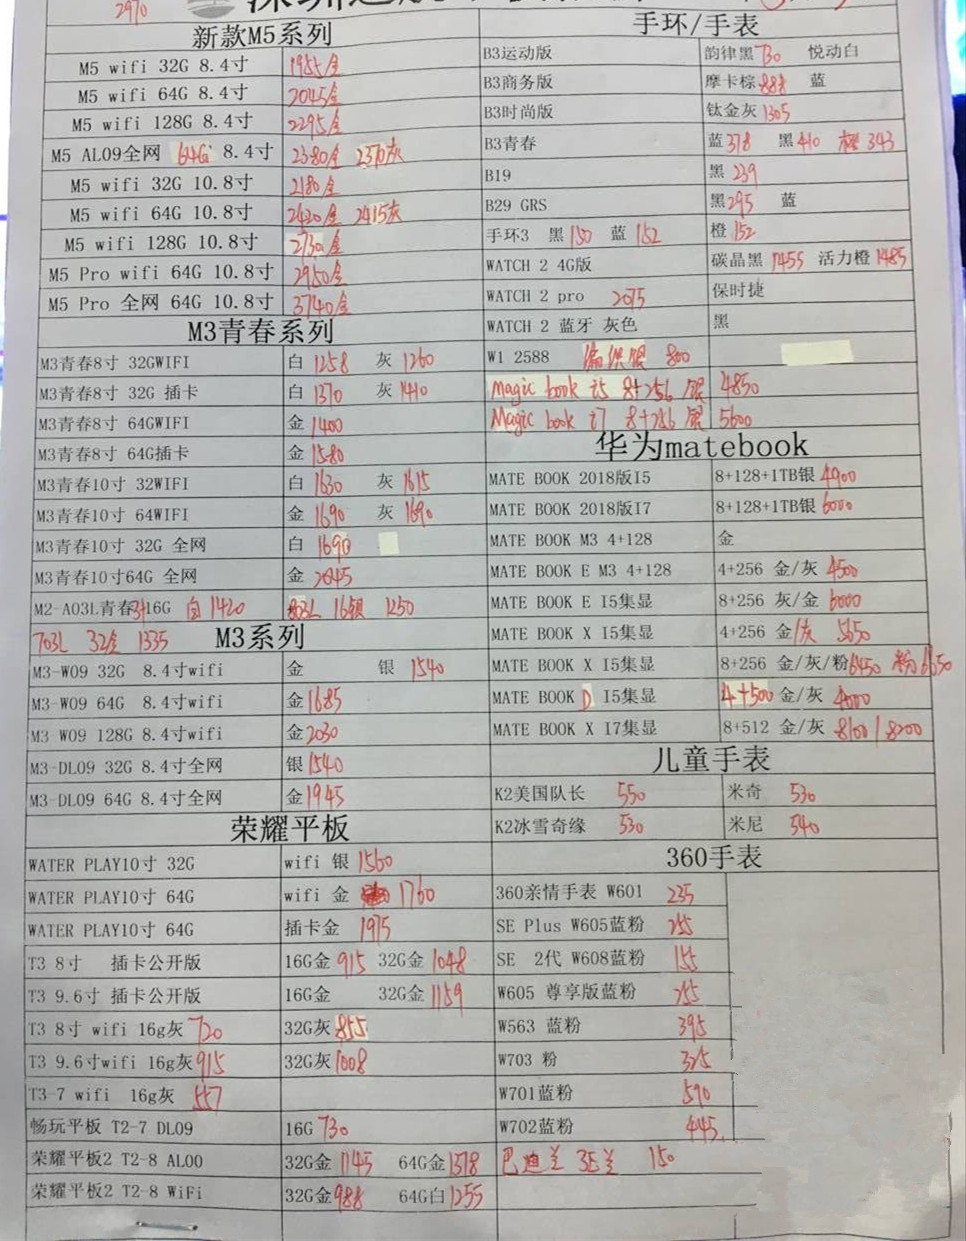 2970
新款M5系列
M5 wifi 32G 8.4寸 1955金
M5 wifi 64G 8.4寸 2045金
M5 wifi 128G 8.4寸 2295金
M5 AL09全网 64G 8.4寸 2380金 2370灰
M5 wifi 32G 10.8寸 2180金
M5 wifi 64G 10.8寸 2420金 2415灰
M5 wifi 128G 10.8寸 2730金
M5 Pro wifi 64G 10.8寸 2950金
M5 Pro 全网 64G 10.8寸 3740金
M3青春系列
M3青春8寸 32GWIFI 白 1258 灰 1260
M3青春8寸 32G 插卡 白 1370 灰 1410
M3青春8寸 64GWIFI 金 1400
M3青春8寸 64G插卡 金 1580
M3青春10寸 32WIFI 白 1630 灰 1615
M3青春10寸 64WIFI 金 1690 灰 1690
M3青春10寸 32G 全网 白 1690
M3青春10寸64G 全网 金 2045
M2-A03L青春 16G 白 1420 803L 16银 1250
703L 32金 1335
M3系列
M3-W09 32G 8.4寸wifi 金 银 1540
M3-W09 64G 8.4寸wifi 金 1685
M3 W09 128G 8.4寸wifi 金 2030
M3-DL09 32G 8.4寸全网 银 1540
M3-DL09 64G 8.4寸全网 金 1945
荣耀平板
WATER PLAY10寸 32G wifi 银 1560
WATER PLAY10寸 64G wifi 金 1760
WATER PLAY10寸 64G 插卡金 1975
T3 8寸 插卡公开版 16G金 915 32G金 1048
T3 9.6寸 插卡公开版 16G金 32G金 1159
T3 8寸 wifi 16g灰 720 32G灰 855
T3 9.6寸wifi 16g灰 915 32G灰 1008
T3-7 wifi 16g灰 557
畅玩平板 T2-7 DL09 16G 730
荣耀平板2 T2-8 AL00 32G金 1145 64G金 1378
荣耀平板2 T2-8 WiFi 32G金 988 64G白 1255
手环/手表
B3运动版 韵律黑 730 悦动白
B3商务版 摩卡棕 888 蓝
B3时尚版 钛金灰 1305
B3青春 蓝 378 黑 410 橙 343
B19 黑 239
B29 GRS 黑 295 蓝
手环3 黑 150 蓝 152 橙 152
WATCH 2 4G版 碳晶黑 1455 活力橙 1485
WATCH 2 pro 2075 保时捷
WATCH 2 蓝牙 灰色 黑
W1 2588 800
Magic book i5 8+256 银 4850
Magic book i7 8+256 银 5600
华为matebook
MATE BOOK 2018版I5 8+128+1TB银 4900
MATE BOOK 2018版I7 8+128+1TB银 6000
MATE BOOK M3 4+128 金
MATE BOOK E M3 4+128 4+256 金/灰 4500
MATE BOOK E I5集显 8+256 灰/金 6000
MATE BOOK X I5集显 4+256 金/灰 5650
MATE BOOK X I5集显 8+256 金/灰/粉 6450 粉 6650
MATE BOOK D I5集显 4+500 金/灰 4000
MATE BOOK X I7集显 8+512 金/灰 8100/8200
儿童手表
K2美国队长 550 米奇 530
K2冰雪奇缘 530 米尼 540
360手表
360亲情手表 W601 235
SE Plus W605蓝粉 255
SE 2代 W608蓝粉 155
W605 尊享版蓝粉 255
W563 蓝粉 395
W703 粉 325
W701蓝粉 590
W702蓝粉 445
巴迪兰 3E兰 150